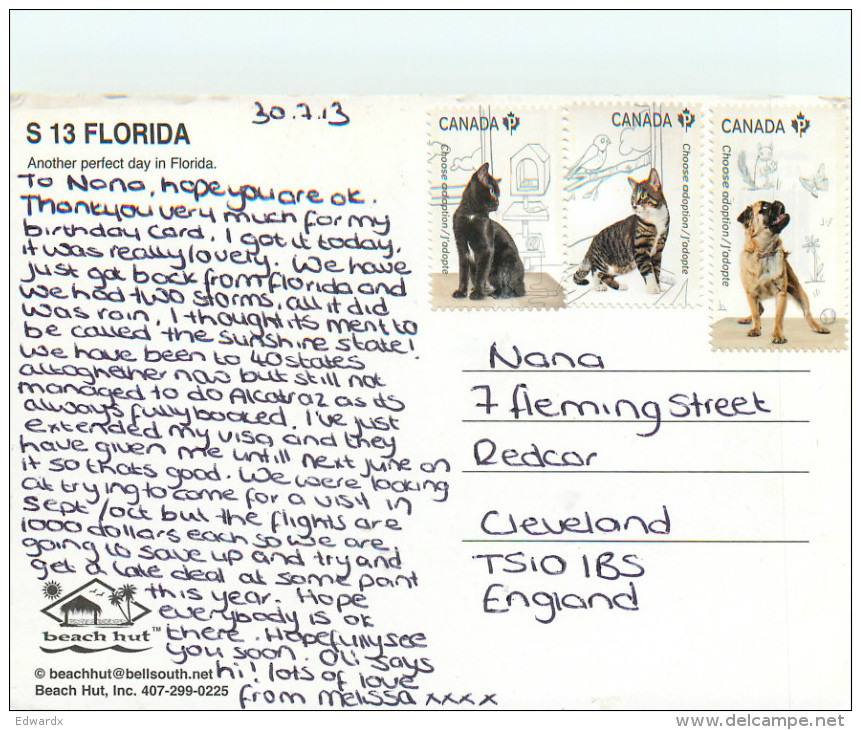 30.7.13
S 13 FLORIDA
Another perfect day in Florida.
To Nana, hope you are ok.
Thankyou very much for my
birthday card, I got it today,
it was really lovely. We have
just got back from florida and
we had two storms, all it did
was rain. I thought its ment to
be called the sunshine state!
We have been to 40 states
altoghether now but still not
managed to do Alcatraz as its
always fully booked. I've just
extended my visa and they
have given me untill next june on
it so thats good. We were looking
at trying to come for a visit in
Sept/oct but the flights are
1000 dollars each so we are
going to save up and try and
get a late deal at some point
this year. Hope
everybody is ok
there. Hopefully see
you soon. Oli says
hi! lots of love
from Melissa xxxx
beach hut™
© beachhut@bellsouth.net
Beach Hut, Inc. 407-299-0225
CANADA P
Choose adoption/J'adopte
CANADA P
Choose adoption/J'adopte
CANADA P
Choose adoption/J'adopte
Nana
7 fleming Street
Redcar
Cleveland
TS10 1BS
England
Edwardx
delcampe.net